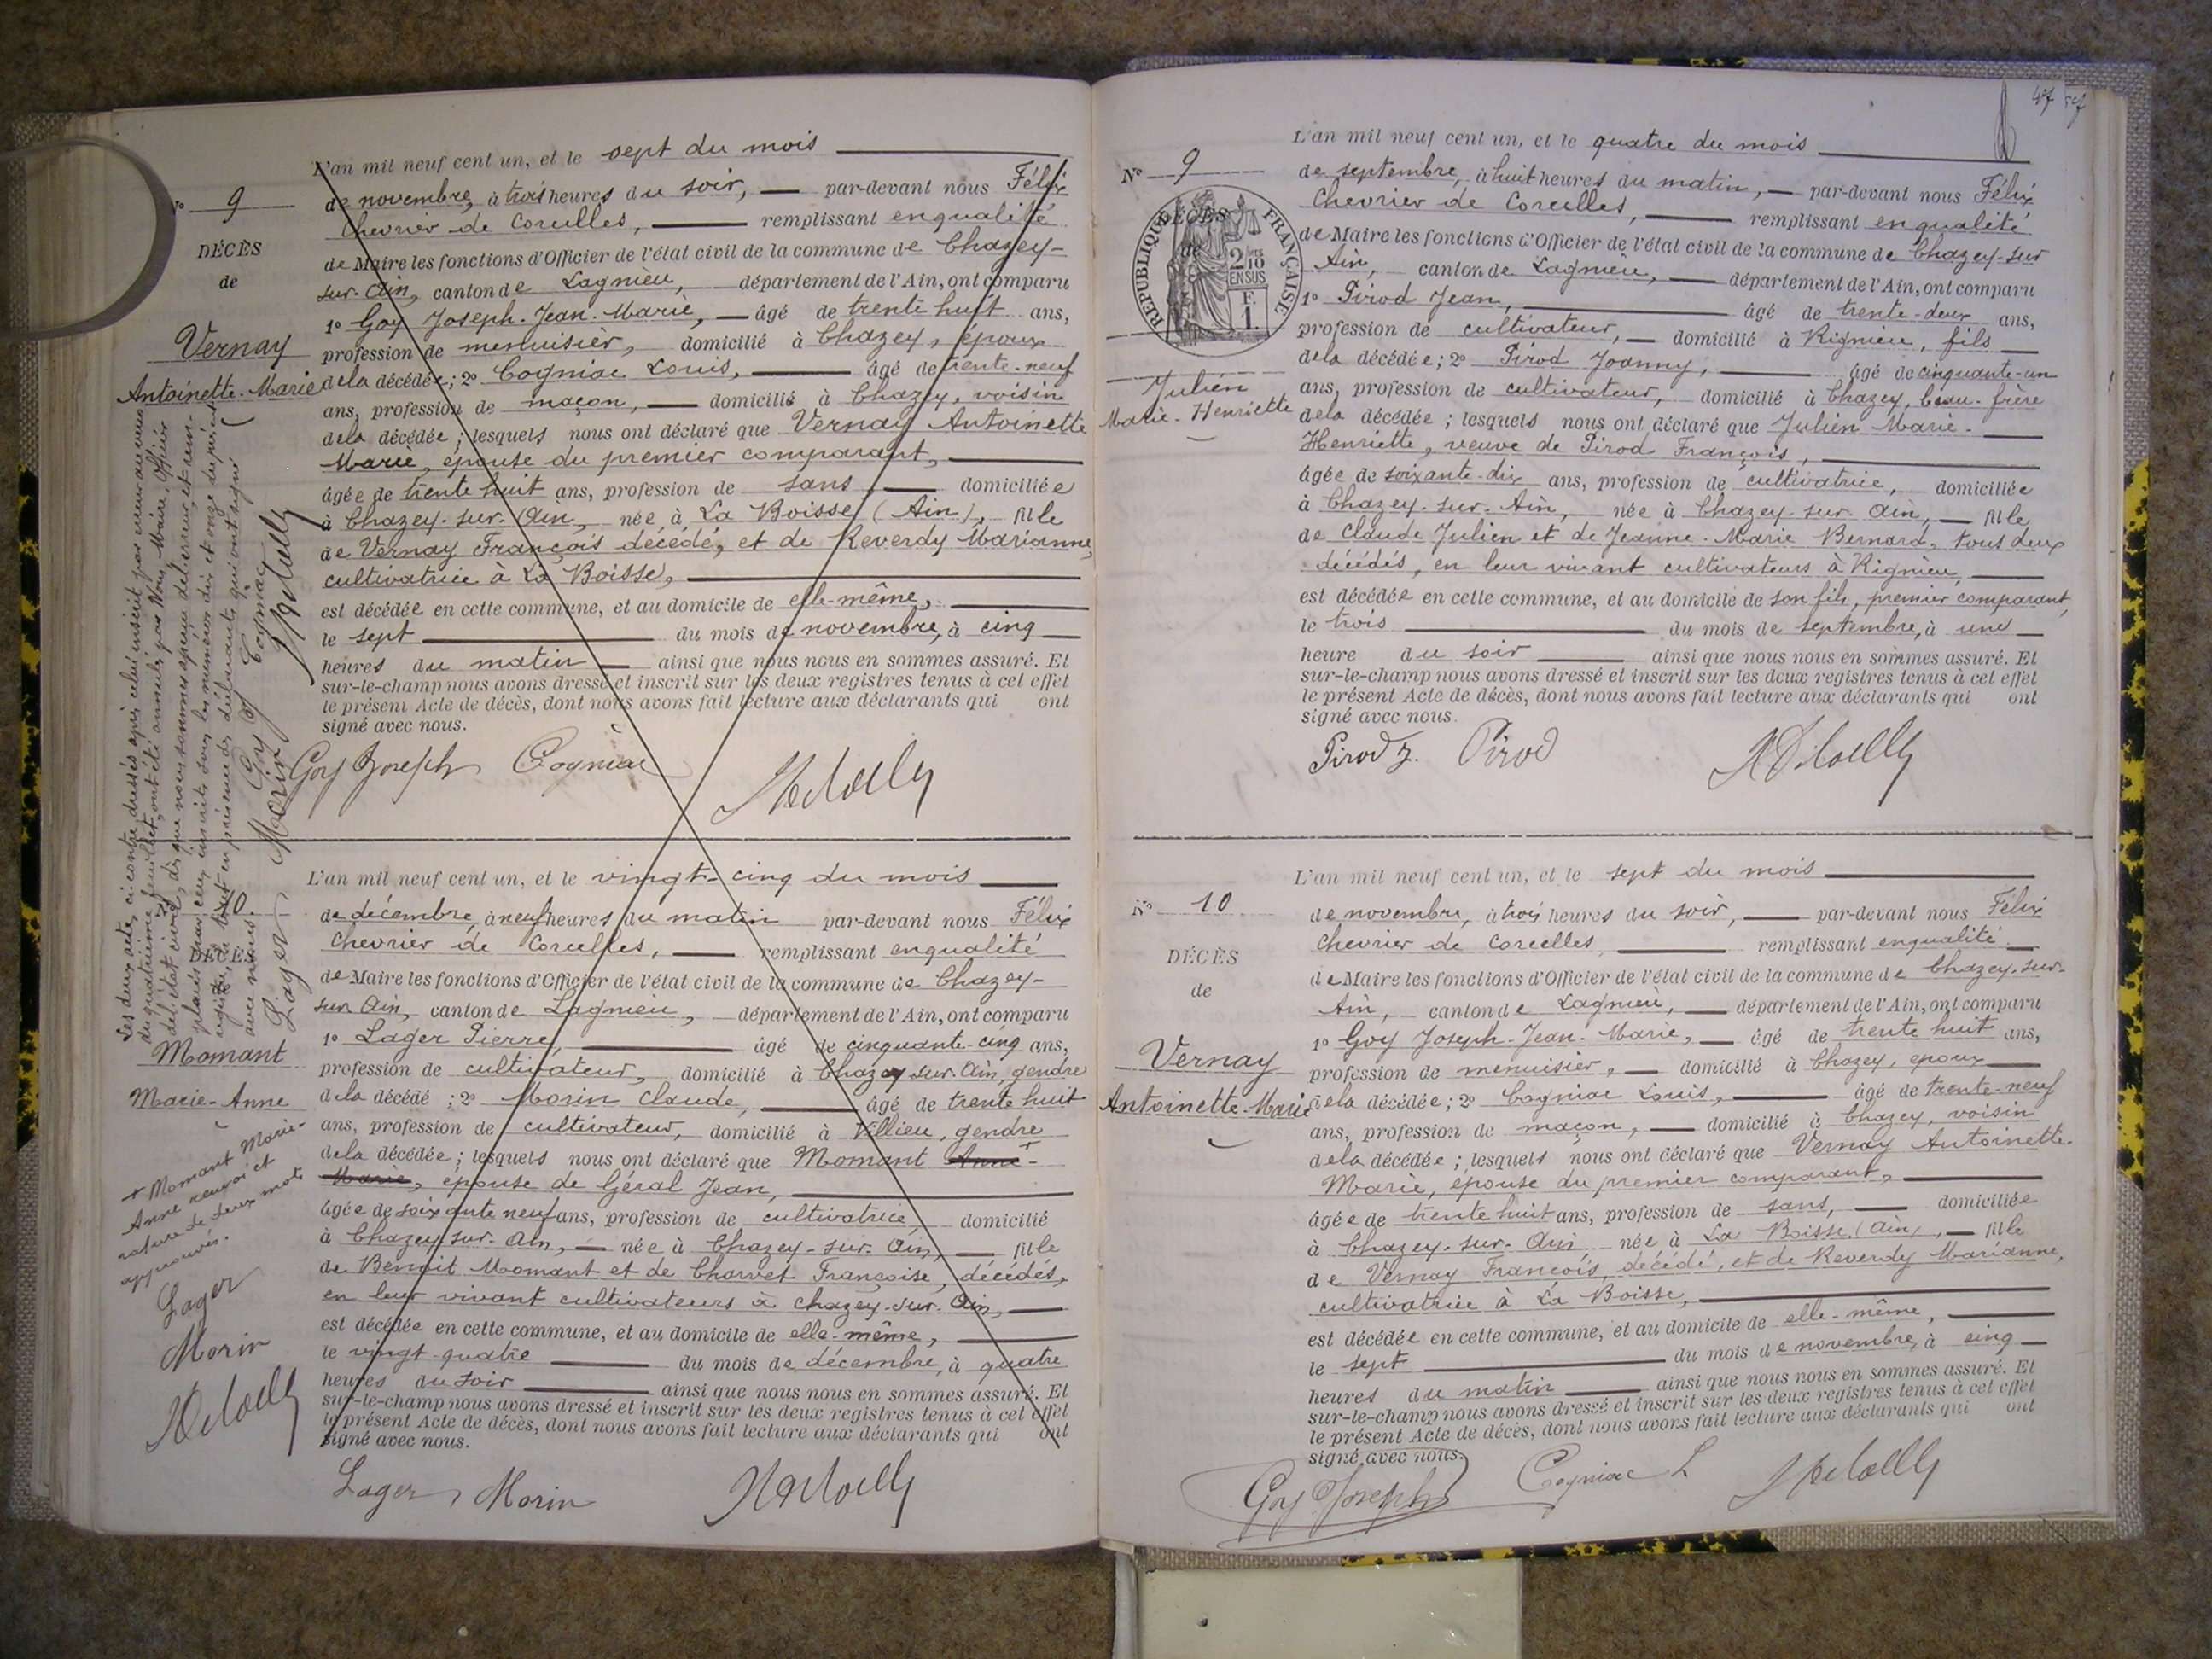 L'an mil neuf cent un, et le sept du mois
de novembre, à trois heures du soir, par-devant nous Félix
Chevrier de Corcelles, remplissant en qualité
de Maire les fonctions d'Officier de l'état civil de la commune de Chazey-
sur-Ain, canton de Lagnieu, département de l'Ain, ont comparu
1º Goy Joseph-Jean-Marie, âgé de trente huit ans,
profession de menuisier, domicilié à Chazey, époux
de la décédée; 2º Cogniac Louis, âgé de trente-neuf
ans, profession de maçon, domicilié à Chazey, voisin
de la décédée; lesquels nous ont déclaré que Vernay Antoinette
Marie, épouse du premier comparant,
âgée de trente huit ans, profession de sans, domiciliée
à Chazey-sur-Ain, née à La Boisse (Ain), fille
de Vernay François décédé, et de Reverdy Marianne,
cultivatrice à La Boisse,
est décédée en cette commune, et au domicile de elle-même,
le sept du mois de novembre, à cinq
heures du matin ainsi que nous nous en sommes assuré. Et
sur-le-champ nous avons dressé et inscrit sur les deux registres tenus à cet effet
le présent Acte de décès, dont nous avons fait lecture aux déclarants qui ont
signé avec nous.
Goy Joseph Cogniac
Nº 9
DÉCÈS
de
Vernay
Antoinette-Marie
Les deux actes ci-contre dressés après celui inscrit par erreur au verso
du quatrième feuillet, ont été annulés par Nous, Maire, Officier
de l'état civil, dès que nous nous sommes aperçu de l'erreur, et rem-
placés par ceux inscrits sous les numéros dix et onze du présent
registre, le tout en présence des déclarants qui ont signé
avec nous.
Lager Morin Goy J Cogniac
L'an mil neuf cent un, et le vingt-cinq du mois
de décembre, à neuf heures du matin par-devant nous Félix
Chevrier de Corcelles, remplissant en qualité
de Maire les fonctions d'Officier de l'état civil de la commune de Chazey-
sur Ain, canton de Lagnieu, département de l'Ain, ont comparu
1º Lager Pierre, âgé de cinquante-cinq ans,
profession de cultivateur, domicilié à Chazey-sur-Ain, gendre
de la décédé; 2º Morin Claude, âgé de trente huit
ans, profession de cultivateur, domicilié à Villieu, gendre
de la décédée; lesquels nous ont déclaré que Momant Anne +
Marie, épouse de Géral Jean,
âgée de soixante neuf ans, profession de cultivatrice, domicilié
à Chazey-sur-Ain, née à Chazey-sur-Ain, fille
de Benoit Momant et de Charvet Françoise, décédés,
en leur vivant cultivateurs à Chazey-sur-Ain,
est décédée en cette commune, et au domicile de elle-même,
le vingt-quatre du mois de décembre, à quatre
heures du soir ainsi que nous nous en sommes assuré. Et
sur-le-champ nous avons dressé et inscrit sur les deux registres tenus à cet effet
le présent Acte de décès, dont nous avons fait lecture aux déclarants qui ont
signé avec nous.
Lager, Morin
10
DÉCÈS
Momant
Marie-Anne
+ Momant Marie-
Anne renvoi et
rature de deux mots
approuvés.
Lager
Morin
47
L'an mil neuf cent un, et le quatre du mois
de septembre, à huit heures du matin, par-devant nous Félix
Chevrier de Corcelles, remplissant en qualité
de Maire les fonctions d'Officier de l'état civil de la commune de Chazey-sur
Ain, canton de Lagnieu, département de l'Ain, ont comparu
1º Pirod Jean, âgé de trente-deux ans,
profession de cultivateur, domicilié à Rignieu, fils
de la décédée; 2º Pirod Joanny, âgé de cinquante-un
ans, profession de cultivateur, domicilié à Chazey, beau-frère
de la décédée; lesquels nous ont déclaré que Julien Marie-
Henriette, veuve de Pirod François,
âgée de soixante-dix ans, profession de cultivatrice, domiciliée
à Chazey-sur-Ain, née à Chazey-sur-Ain, fille
de Claude Julien et de Jeanne-Marie Bernard, tous deux
décédés, en leur vivant cultivateurs à Rignieu,
est décédée en cette commune, et au domicile de son fils, premier comparant,
le trois du mois de septembre, à une
heure du soir ainsi que nous nous en sommes assuré. Et
sur-le-champ nous avons dressé et inscrit sur les deux registres tenus à cet effet
le présent Acte de décès, dont nous avons fait lecture aux déclarants qui ont
signé avec nous.
Pirod J. Pirod
Nº 9
DÉCÈS
de
RÉPUBLIQUE FRANÇAISE
2/10
EN SUS
F.
1.
Julien
Marie-Henriette
L'an mil neuf cent un, et le sept du mois
de novembre, à trois heures du soir, par-devant nous Félix
Chevrier de Corcelles, remplissant en qualité
de Maire les fonctions d'Officier de l'état civil de la commune de Chazey-sur-
Ain, canton de Lagnieu, département de l'Ain, ont comparu
1º Goy Joseph-Jean-Marie, âgé de trente huit ans,
profession de menuisier, domicilié à Chazey, époux
de la décédée; 2º Cogniac Louis, âgé de trente-neuf
ans, profession de maçon, domicilié à Chazey, voisin
de la décédée; lesquels nous ont déclaré que Vernay Antoinette-
Marie, épouse du premier comparant,
âgée de trente huit ans, profession de sans, domiciliée
à Chazey-sur-Ain, née à La Boisse (Ain), fille
de Vernay François, décédé, et de Reverdy Marianne,
cultivatrice à La Boisse,
est décédée en cette commune, et au domicile de elle-même,
le sept du mois de novembre, à cinq
heures du matin ainsi que nous nous en sommes assuré. Et
sur-le-champ nous avons dressé et inscrit sur les deux registres tenus à cet effet
le présent Acte de décès, dont nous avons fait lecture aux déclarants qui ont
signé avec nous.
Goy Joseph Cogniac L
Nº 10
DÉCÈS
de
Vernay
Antoinette-Marie